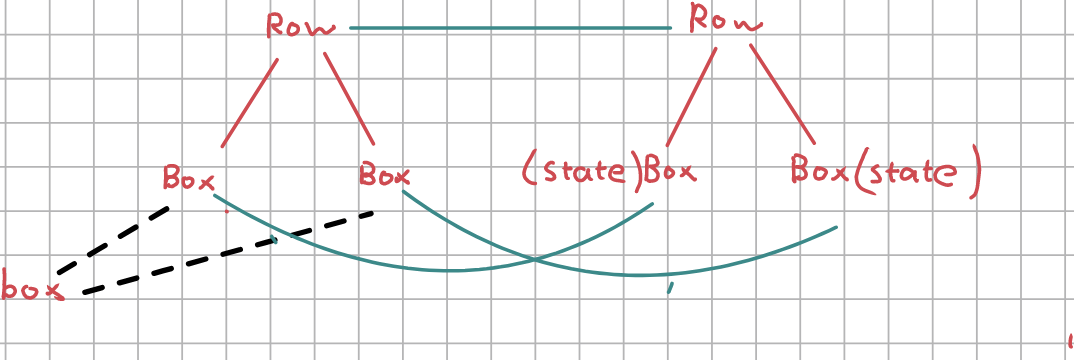 Row Row
Box Box (state)Box Box(state)
box